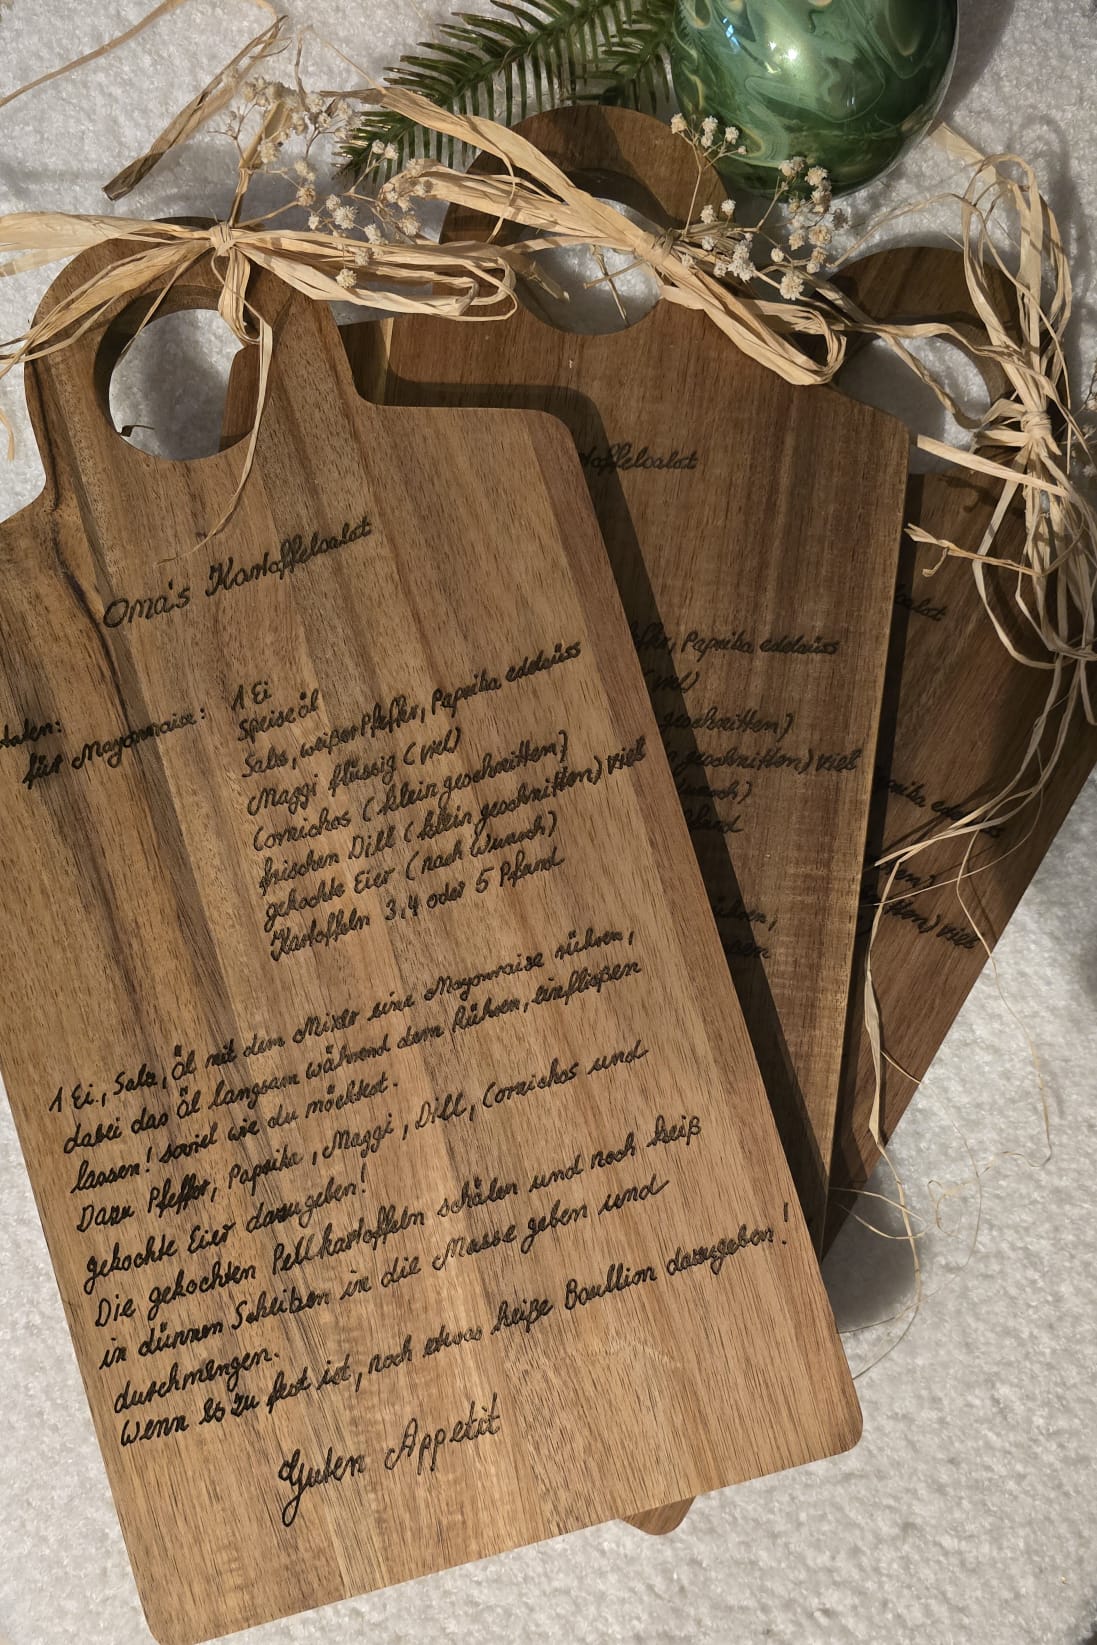 Oma's Kartoffelsalat
taten:
für Mayonnaise:
1 Ei
Speiseöl
Salz, weißer Pfeffer, Paprika edelsüss
Maggi flüssig (viel)
Cornichos (klein geschnitten)
frischen Dill (klein geschnitten) viel
gekochte Eier (nach Wunsch)
Kartoffeln 3,4 oder 5 Pfund
1 Ei, Salz, Öl mit dem Mixer eine Mayonnaise rühren,
dabei das Öl langsam während dem Rühren, einfließen
lassen! soviel wie du möchtest.
Dazu Pfeffer, Paprika, Maggi, Dill, Cornichos und
gekochte Eier dazugeben!
Die gekochten Pellkartoffeln schälen und noch heiß
in dünnen Scheiben in die Masse geben und
durchmengen.
Wenn es zu fest ist, noch etwas heiße Boullion dazugeben!
Guten Appetit
toffelsalat
ffer, Paprika edelsüss
(viel)
geschnitten)
geschnitten) viel
unsch)
Pfund
ühren,
ssen
alat
aprika edelsüss
tten)
itten) viel